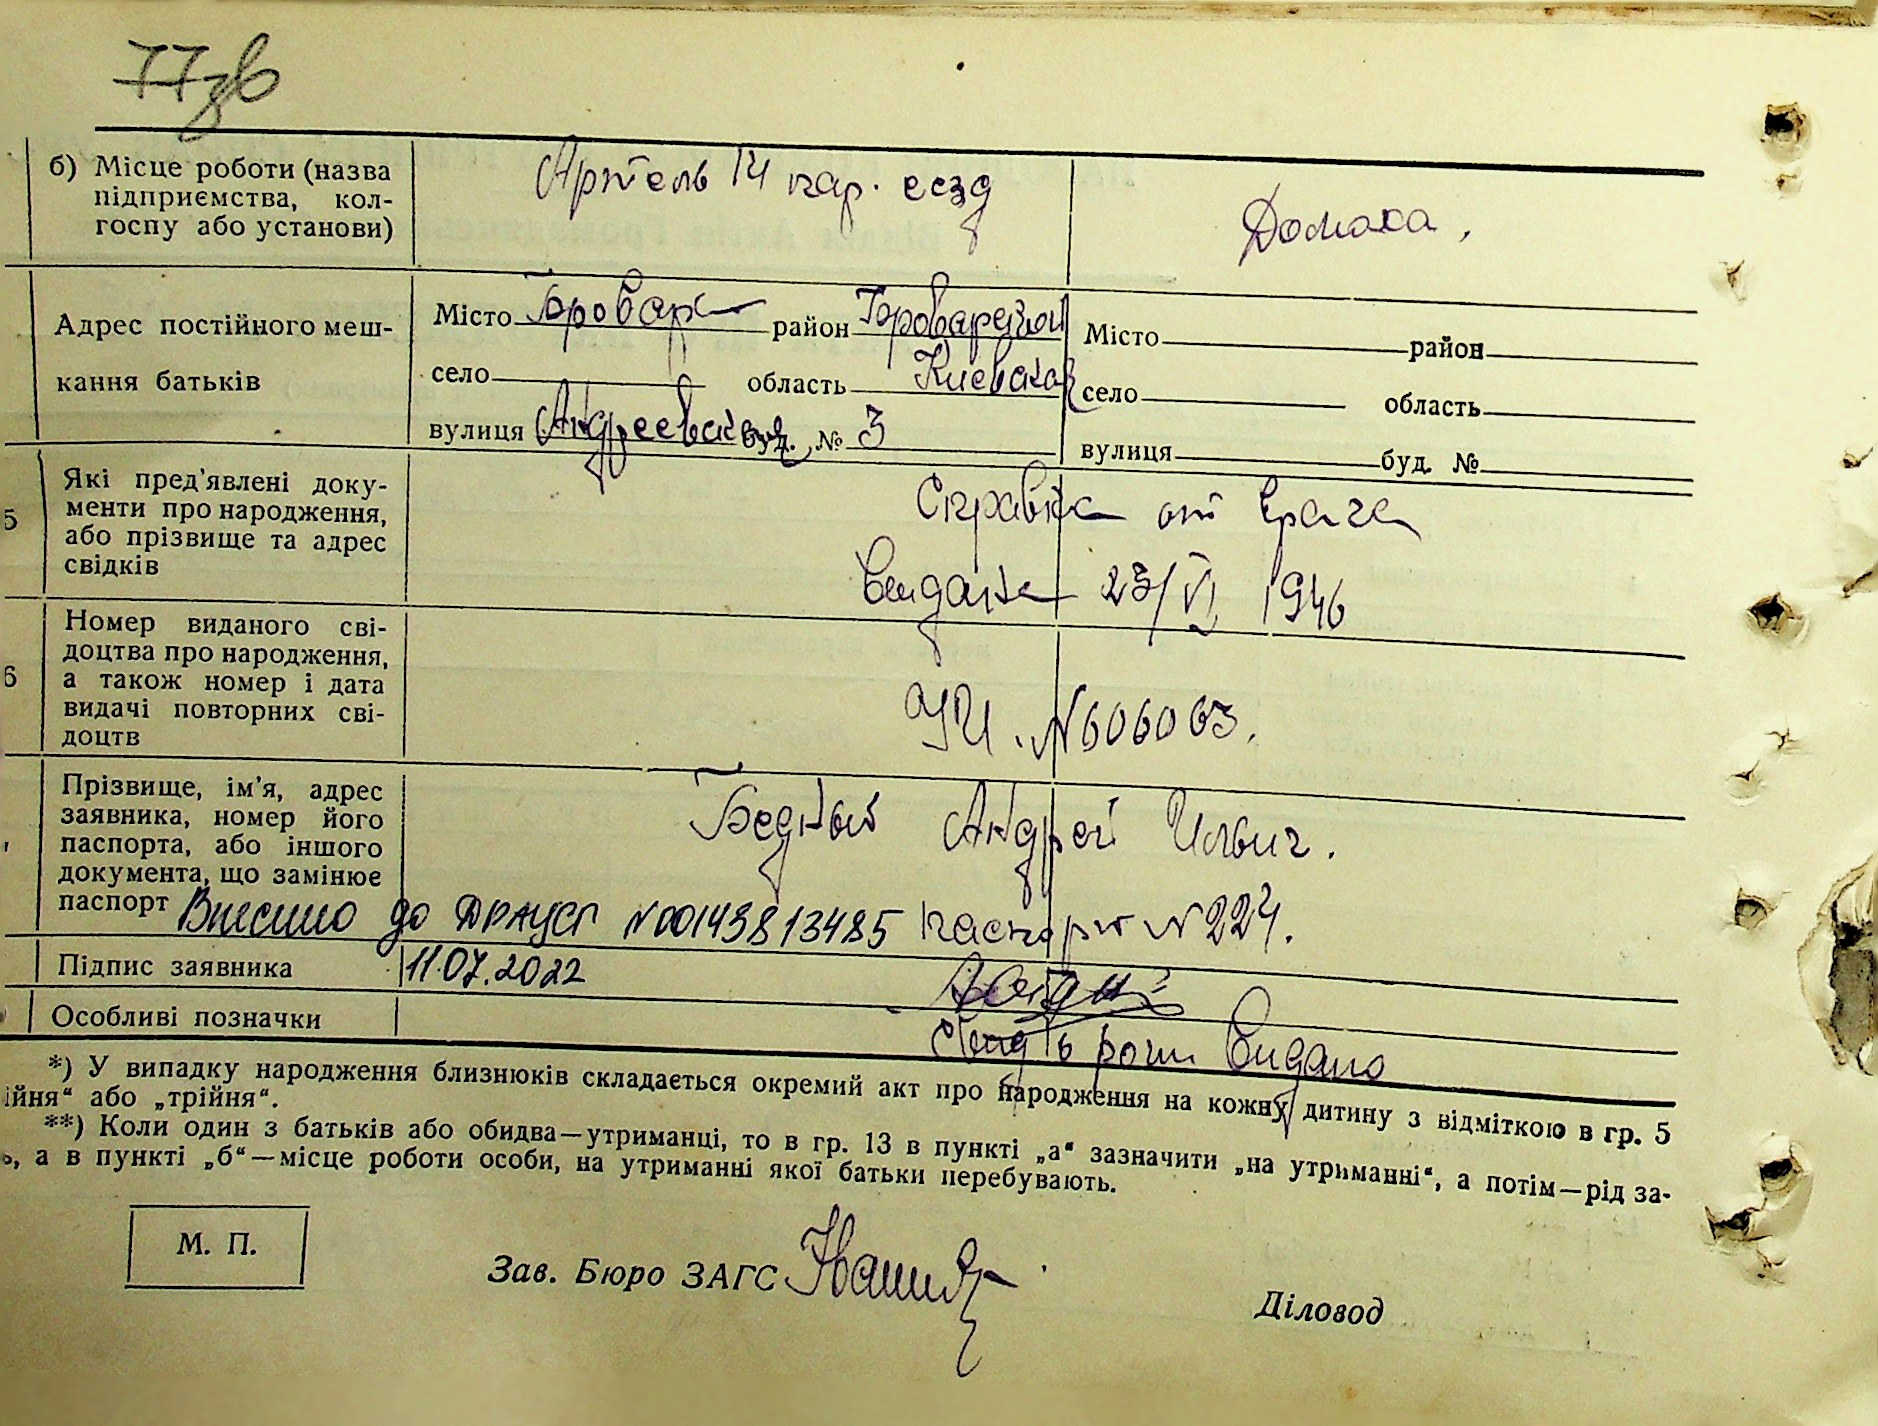 77зв
б) Місце роботи (назва
підприємства, кол-
госпу або установи)
Артель 14 пар. сезд
Домаха.
Адрес постійного меш-
кання батьків
Місто Бровары район Броварский
село область Киевская
вулиця Андреевская буд. № 3
Місто район
село область
вулиця буд. №
5 Які пред'явлені доку-
менти про народження,
або прізвище та адрес
свідків
Справка от врача
выдана 23/VI 1946
6 Номер виданого сві-
доцтва про народження,
а також номер і дата
видачі повторних сві-
доцтв
УИ. N606063.
Прізвище, ім'я, адрес
заявника, номер його
паспорта, або іншого
документа, що замінює
паспорт
Бедный Андрей Ильич.
Внесено до ДРАЦСГ N00143813485 паспорт N 224.
Підпис заявника 11.07.2022
Особливі позначки
рош Видано
*) У випадку народження близнюків складається окремий акт про народження на кожну дитину з відміткою в гр. 5
ійня" або „трійня".
**) Коли один з батьків або обидва—утриманці, то в гр. 13 в пункті „а" зазначити „на утриманні", а потім—рід за-
ь, а в пункті „б"—місце роботи особи, на утриманні якої батьки перебувають.
М. П.
Зав. Бюро ЗАГС
Діловод